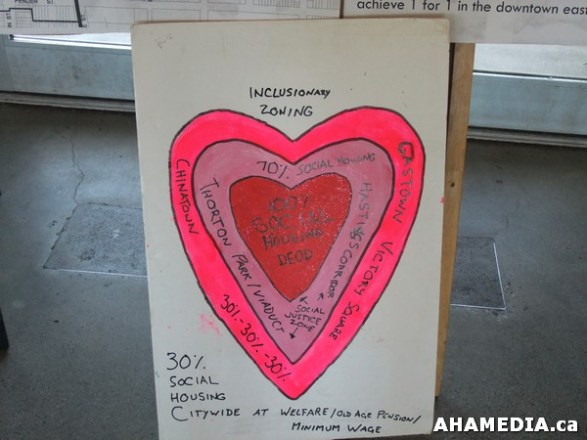 PENDER ST.
achieve 1 for 1 in the downtown east
INCLUSIONARY
ZONING
CHINATOWN
GASTOWN VICTORY SQUARE
30% - 30% - 30%
70% SOCIAL HOUSING
THORTON PARK/VIADUCT
HASTINGS CORRIDOR
SOCIAL
JUSTICE
ZONE
100%
SOCIAL
HOUSING
DEOD
30%
SOCIAL
HOUSING
CITYWIDE AT WELFARE/OLD AGE PENSION/
MINIMUM WAGE
AHAMEDIA.ca